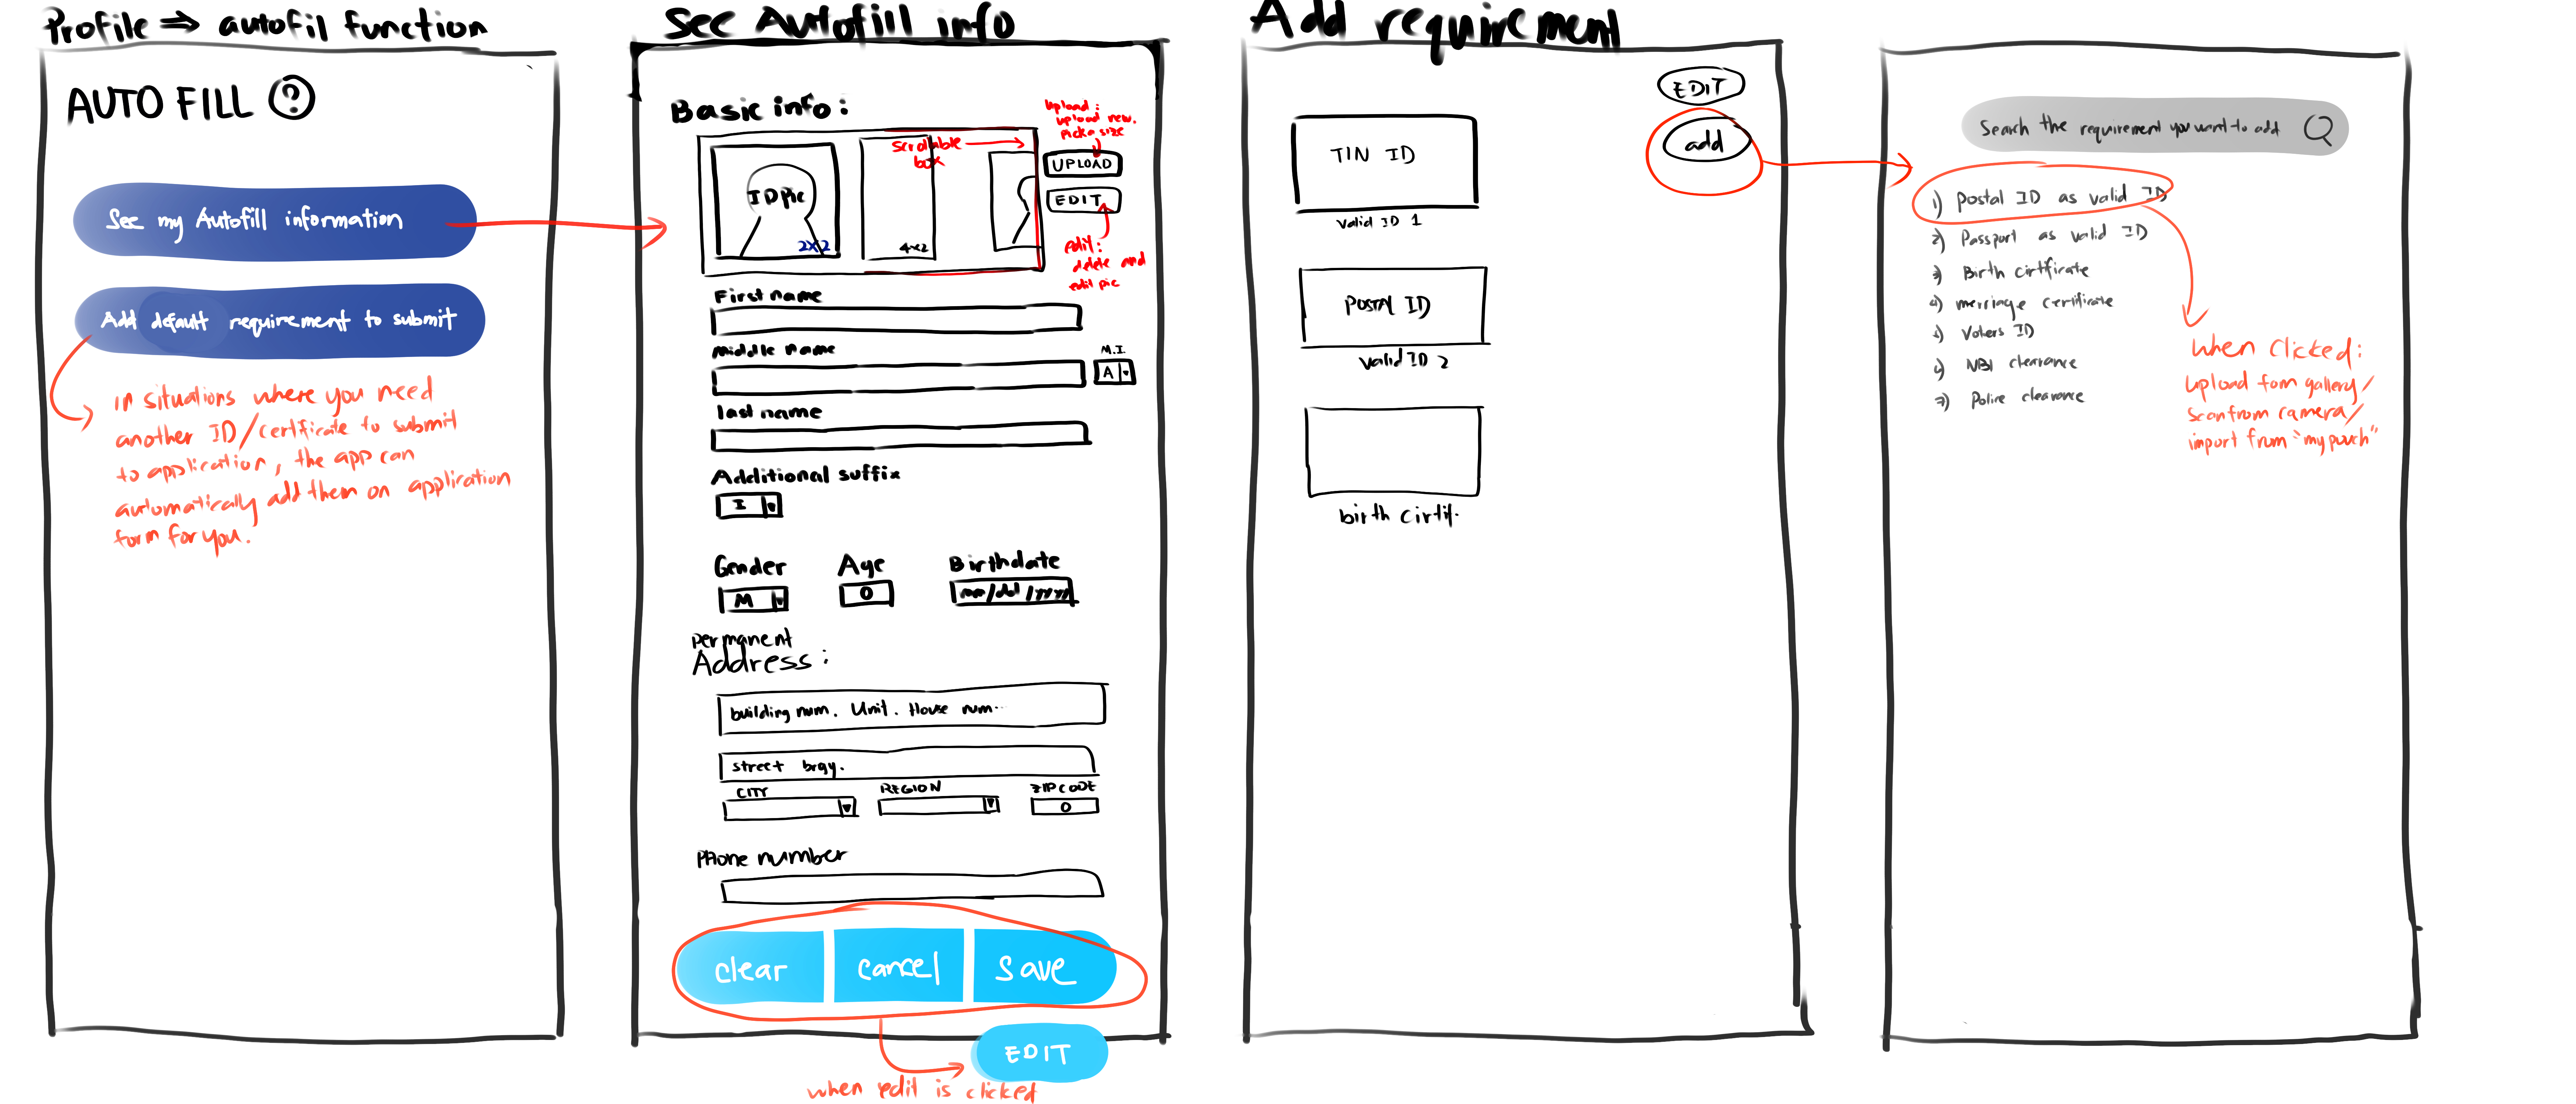 Profile ⇒ autofil function
AUTO FILL ?
See my Autofill information
Add default requirement to submit
in situations where you need
another ID/certficate to submit
to application, the app can
automatically add them on application
form for you.
See Autofill info
Basic info:
ID pic
2x2
scrollable
box
4x2
upload:
upload new.
pick a size
UPLOAD
EDIT
edit:
delete and
edit pic
First name
middle name
M.I.
A
last name
Additional suffix
I
Gender
Age
Birthdate
M
0
mm/dd/yyyy
permanent
Address:
building num. Unit. House num..
street brgy.
CITY
REGION
ZIPCODE
0
Phone number
clear
cancel
save
EDIT
when edit is clicked
Add requirement
EDIT
add
TIN ID
valid ID 1
POSTAL ID
valid ID 2
birth cirtif.
Search the requirement you want to add
1) Postal ID as valid ID
2) Passport as valid ID
3) Birth cirtficate
4) merriage certificate
5) Voters ID
6) NBI clearance
7) Police clearance
when clicked:
upload from gallery/
scan from camera/
import from "my pouch"